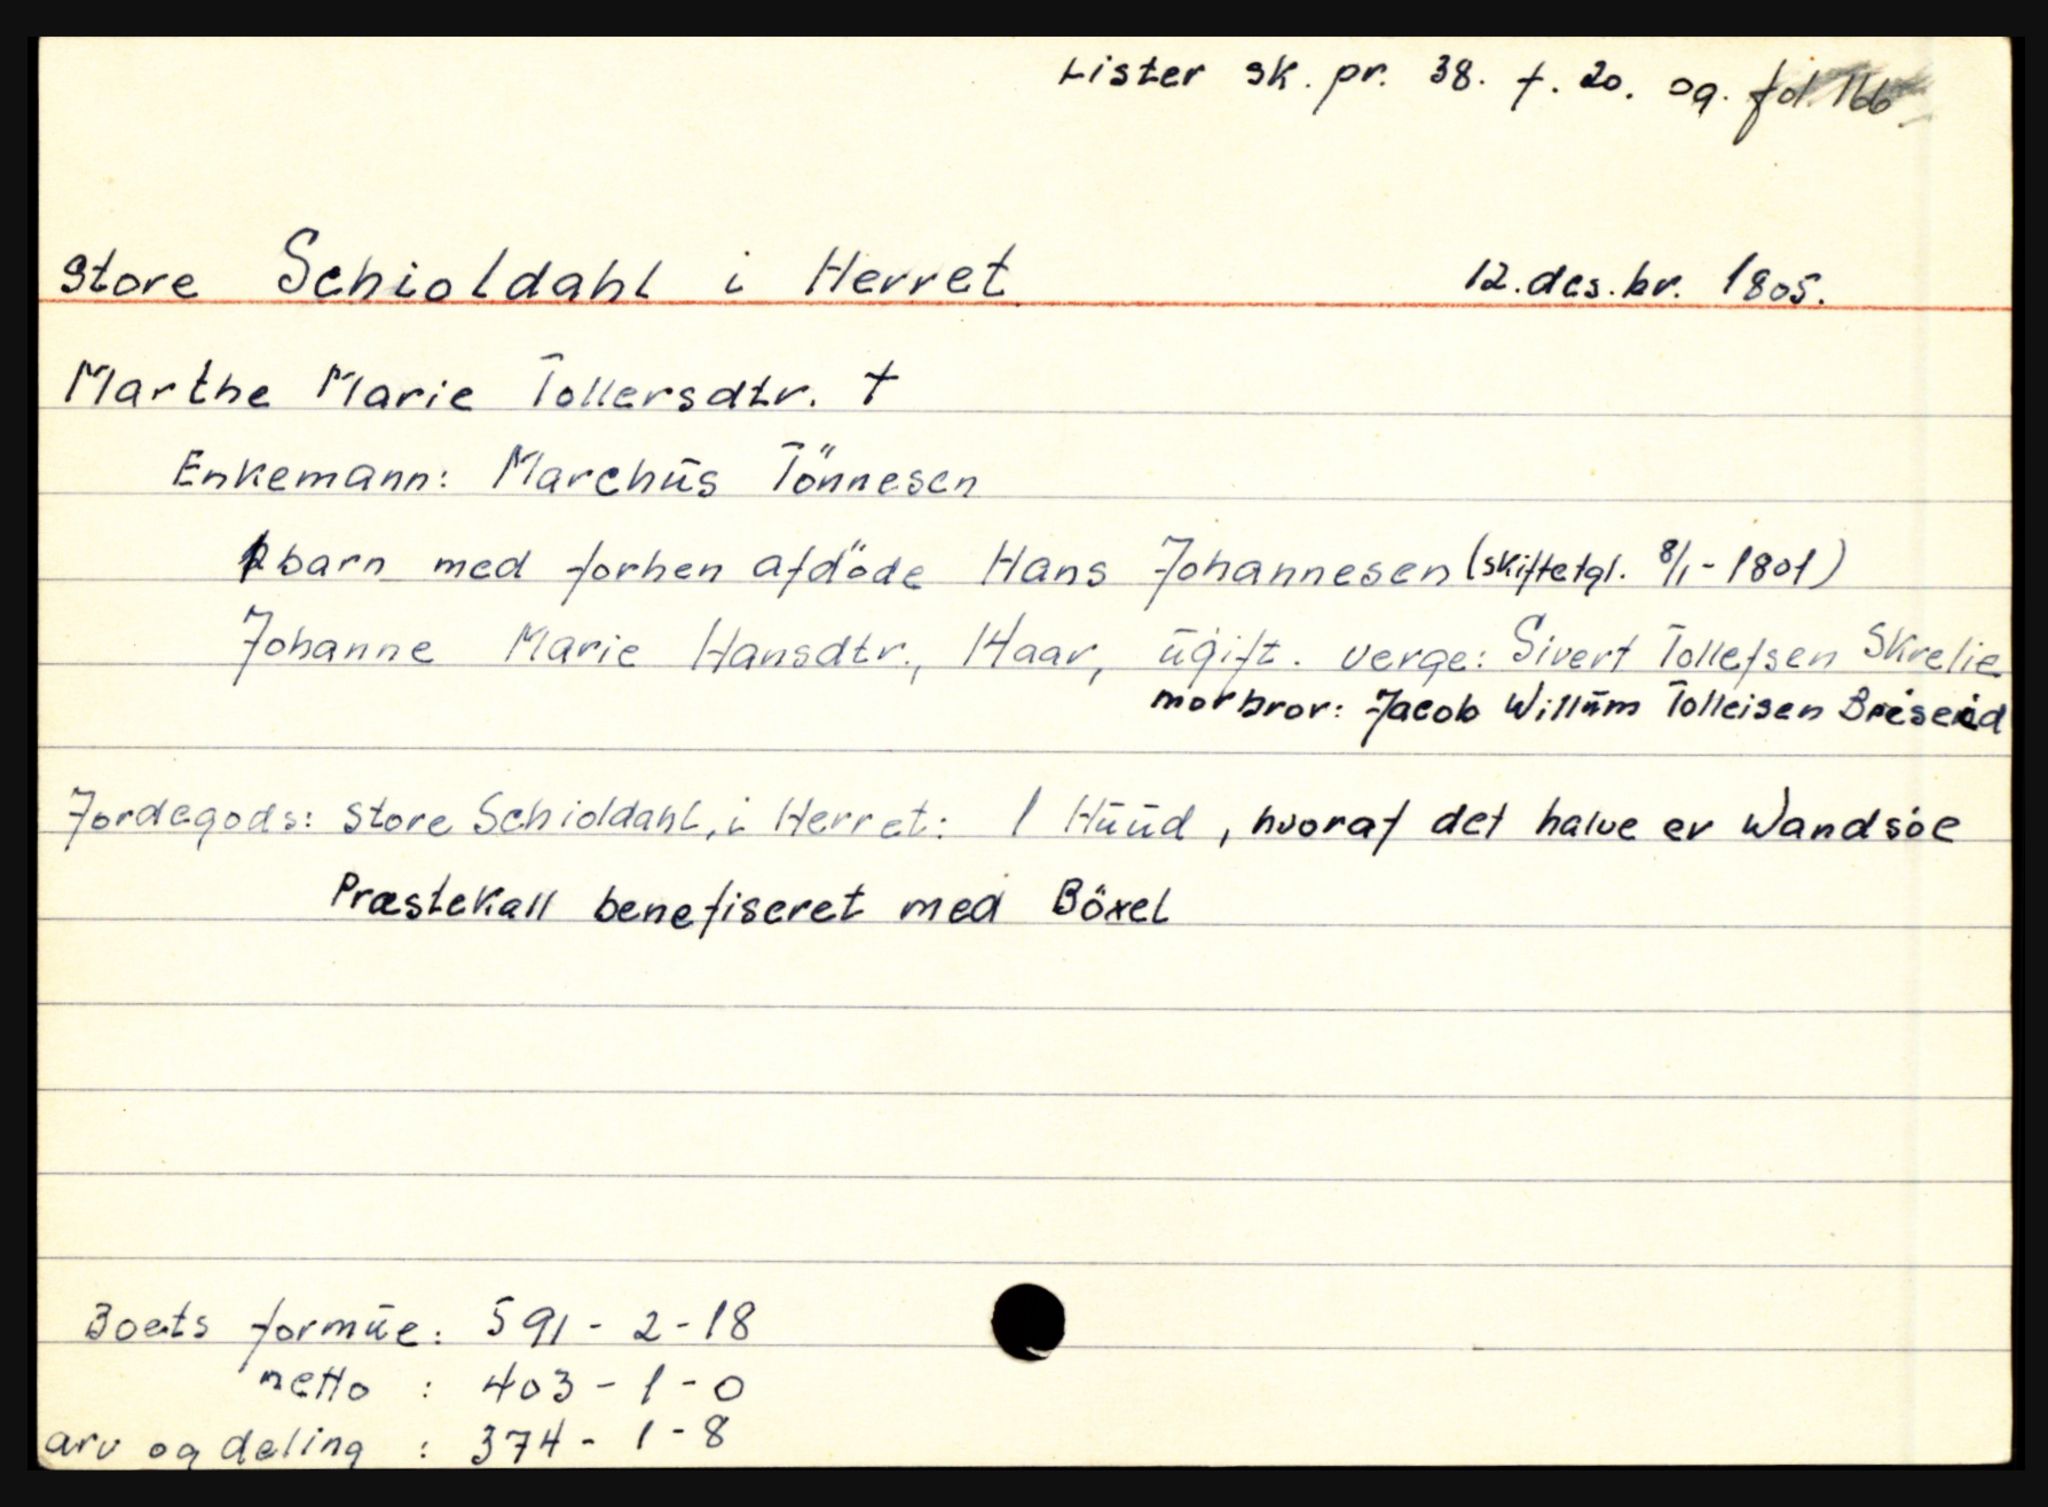 Lister sk. pr. 38. f. 20. og. fol. 166
Store Schioldahl i Herret 12. des. br. 1805.
Marthe Marie Tollersdtr. †
Enkemann: Marchūs Tönnesen
1 barn med forhen afdöde Hans Johannesen (skiftetgl. 8/1 - 1801)
Johanne Marie Hansdtr., 14aar, ūgift. verge: Sivert Tollefsen Skrelie
morbror: Jacob Willūm Tolleisen Briseid
Jordegods: Store Schioldahl, i Herret: 1 Hūūd, hvoraf det halve er Wandsöe
Præstekall benefiseret med Böxel
Boets formūe: 591 - 2 - 18
netto : 403 - 1 - 0
arv og deling : 374 - 1 - 8